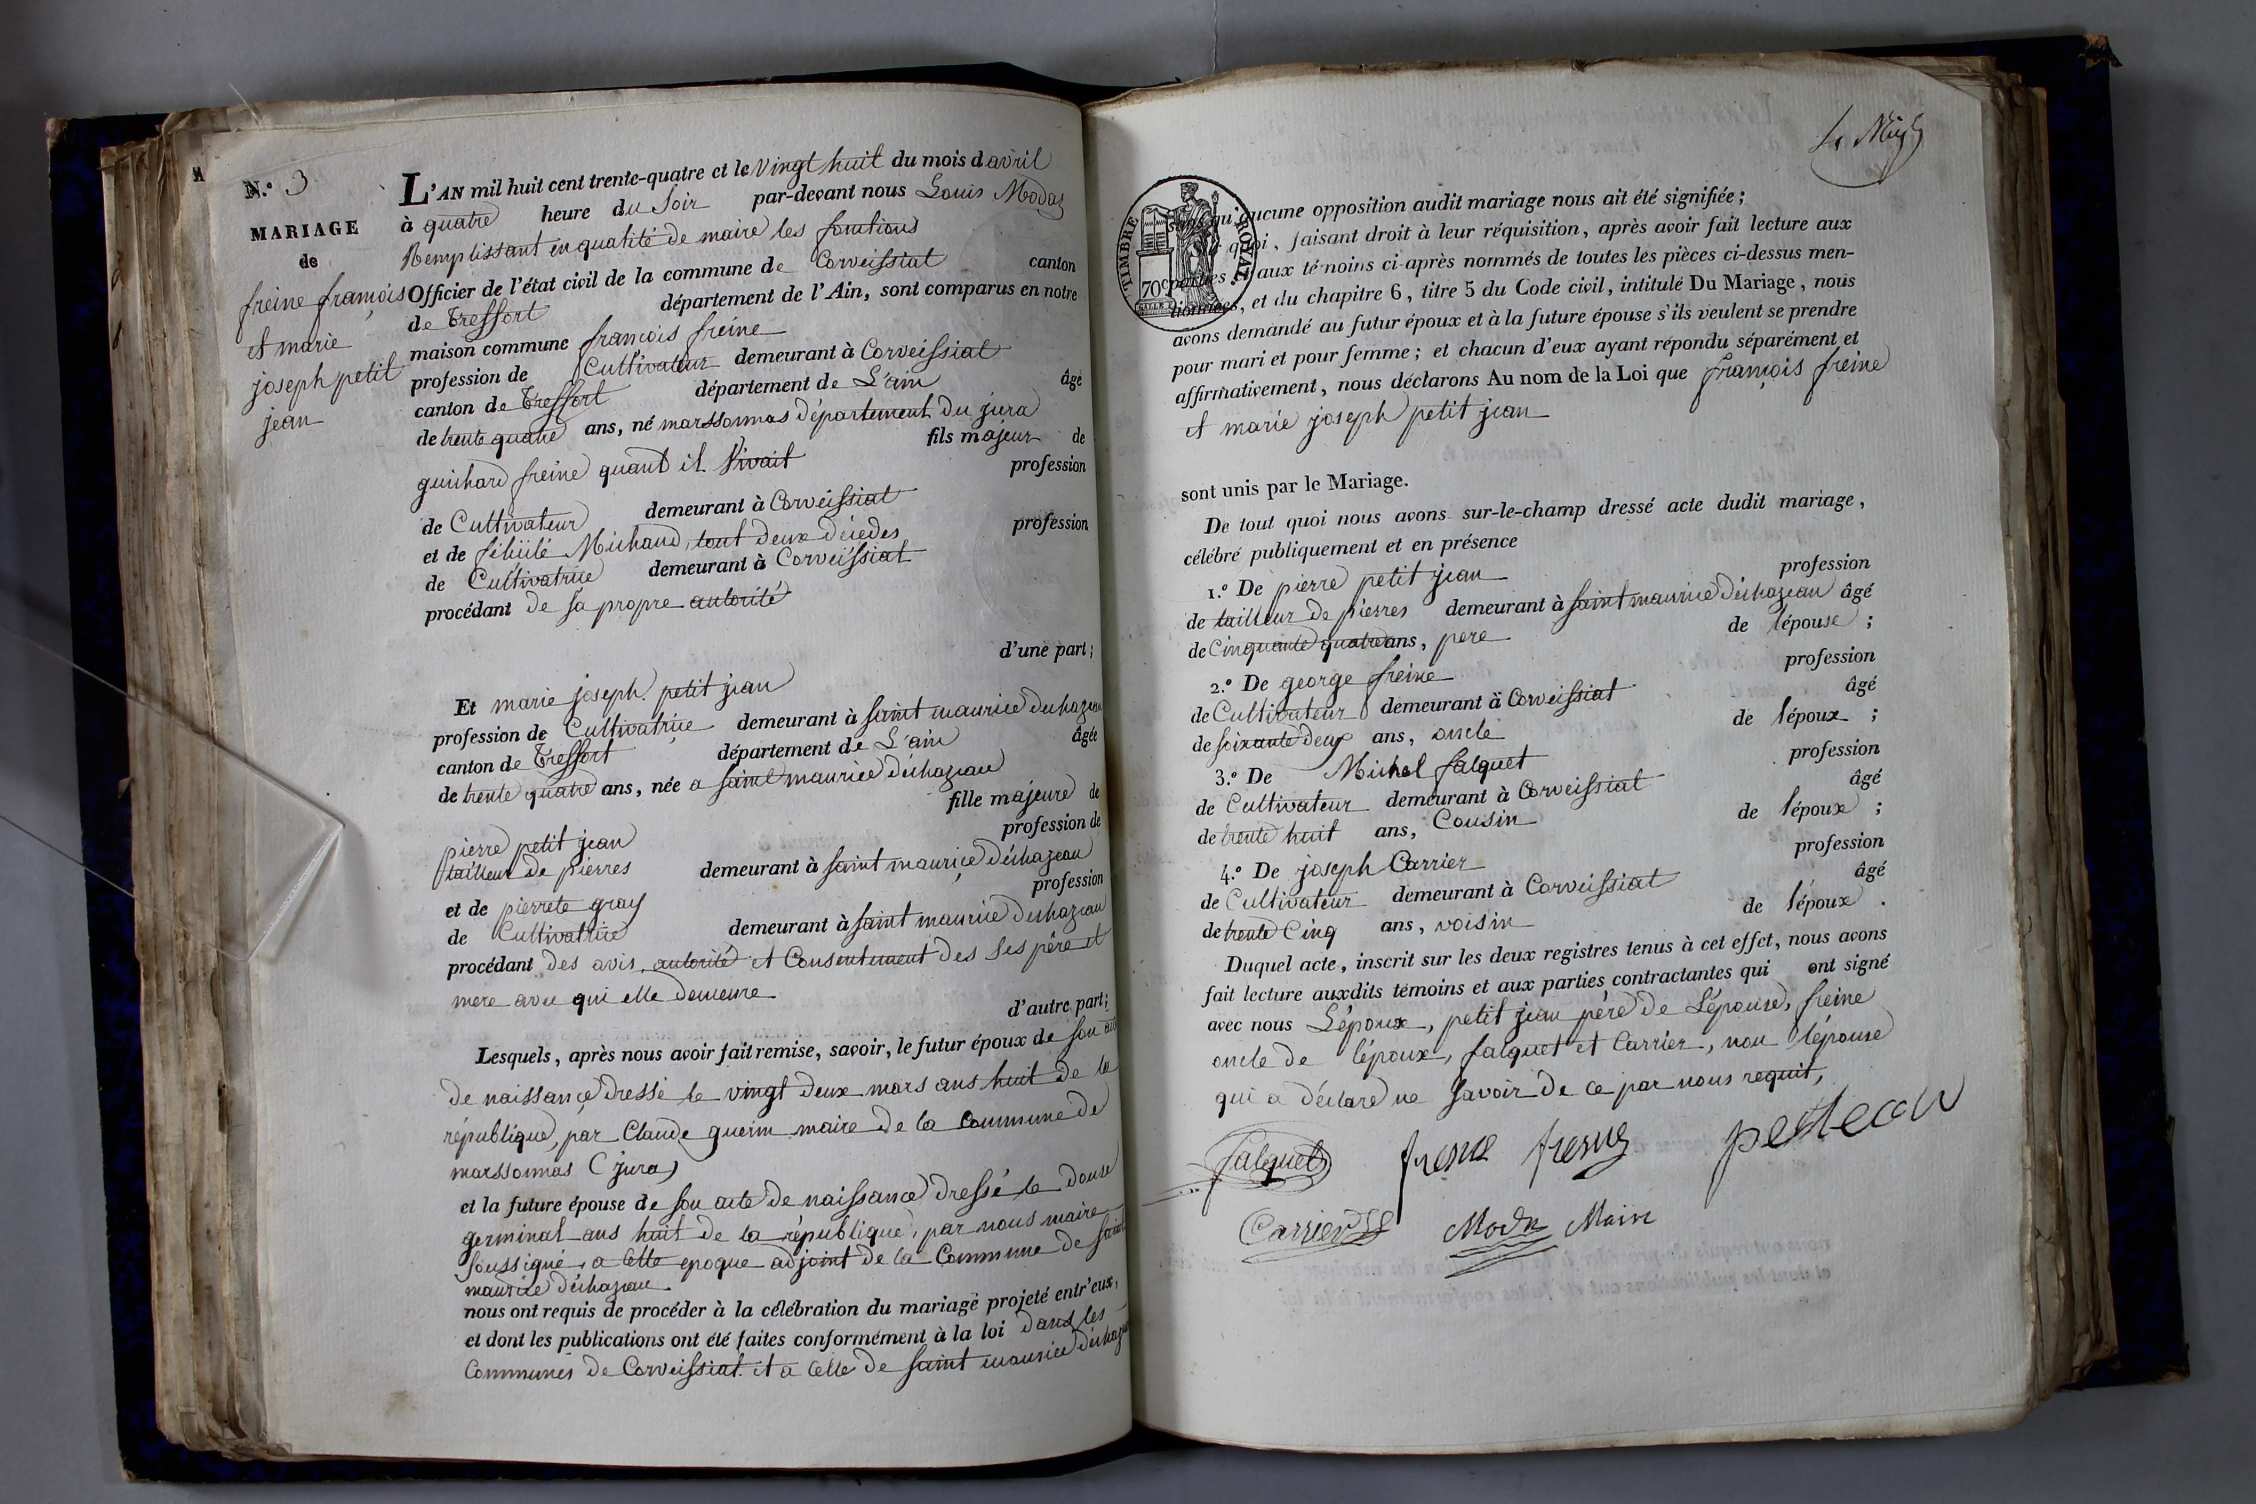 N.º 3
MARIAGE
de
freine françois
et marie
joseph petit
jean
L'AN mil huit cent trente-quatre et le vingt huit du mois d avril
à quatre heure du soir par-devant nous Louis Modas
Remplissant en qualité de maire les fontions
Officier de l'état civil de la commune de Corveissiat canton
de Treffort département de l'Ain, sont comparus en notre
maison commune françois freine
profession de Cultivateur demeurant à Corveissiat
canton de Treffort département de L'ain âgé
de trente quatre ans, né marssonnas département du jura
fils majeur de
guichard freine quant il vivait profession
de Cultivateur demeurant à Corveissiat
et de félicité Michaud, tout deux décédes profession
de Cultivatrice demeurant à Corveissiat
procédant de sa propre autorité
d'une part;
Et marie joseph petit jean
profession de Cultivatrice demeurant à saint maurice dechazeau
canton de Treffort département de L'ain âgée
de trente quatre ans, née a saint maurice déchazeau
fille majeure de
pierre petit jean profession de
tailleur de pierres demeurant à saint maurice déchazeau
et de pierrete gray profession
de Cultivatrice demeurant à saint maurice dechazeau
procédant des avis, autorité et Consentement des ses père et
mere avec qui elle demeure
d'autre part;
Lesquels, après nous avoir fait remise, savoir, le futur époux de son acte
de naissance dressé le vingt deux mars ans huit de la
république, par Claude guerin maire de la Commune de
marssonnas (jura)
et la future épouse de son acte de naissance dressé le douse
germinal ans huit de la république, par nous maire
soussigné, a cette epoque adjoint de la Commune de saint
maurice déchazeau
nous ont requis de procéder à la célébration du mariage projeté entr'eux,
et dont les publications ont été faites conformément à la loi dans les
Communes de Corveissiat et a celle de saint maurice déchazeau
TIMBRE ROYAL
70c
sans qu'aucune opposition audit mariage nous ait été signifiée;
quoi, faisant droit à leur réquisition, après avoir fait lecture aux
parties aux témoins ci-après nommés de toutes les pièces ci-dessus men-
tionnées, et du chapitre 6, titre 5 du Code civil, intitulé Du Mariage, nous
avons demandé au futur époux et à la future épouse s'ils veulent se prendre
pour mari et pour femme; et chacun d'eux ayant répondu séparément et
affirmativement, nous déclarons Au nom de la Loi que françois freine
et marie joseph petit jean
sont unis par le Mariage.
De tout quoi nous avons sur-le-champ dressé acte dudit mariage,
célébré publiquement et en présence
1.º De pierre petit jean profession
de tailleur de pierres demeurant à saint maurice déchazeau âgé
de Cinquante quatre ans, pere de l'épouse;
2.º De george freine profession
de Cultivateur demeurant à Corveissiat âgé
de soixante deux ans, oncle de l'époux;
3.º De Michel falquet profession
de Cultivateur demeurant à Corveissiat âgé
de trente huit ans, Cousin de l'époux;
4.º De joseph Carrier profession
de Cultivateur demeurant à Corveissiat âgé
de trente Cinq ans, voisin de l'époux.
Duquel acte, inscrit sur les deux registres tenus à cet effet, nous avons
fait lecture auxdits témoins et aux parties contractantes qui ont signé
avec nous L'époux, petit jean père de L'épouse, freine
oncle de l'époux, falquet et Carrier, non l'épouse
qui a déclaré ne savoir de ce par nous requit,
falquet
Carrier
Maire